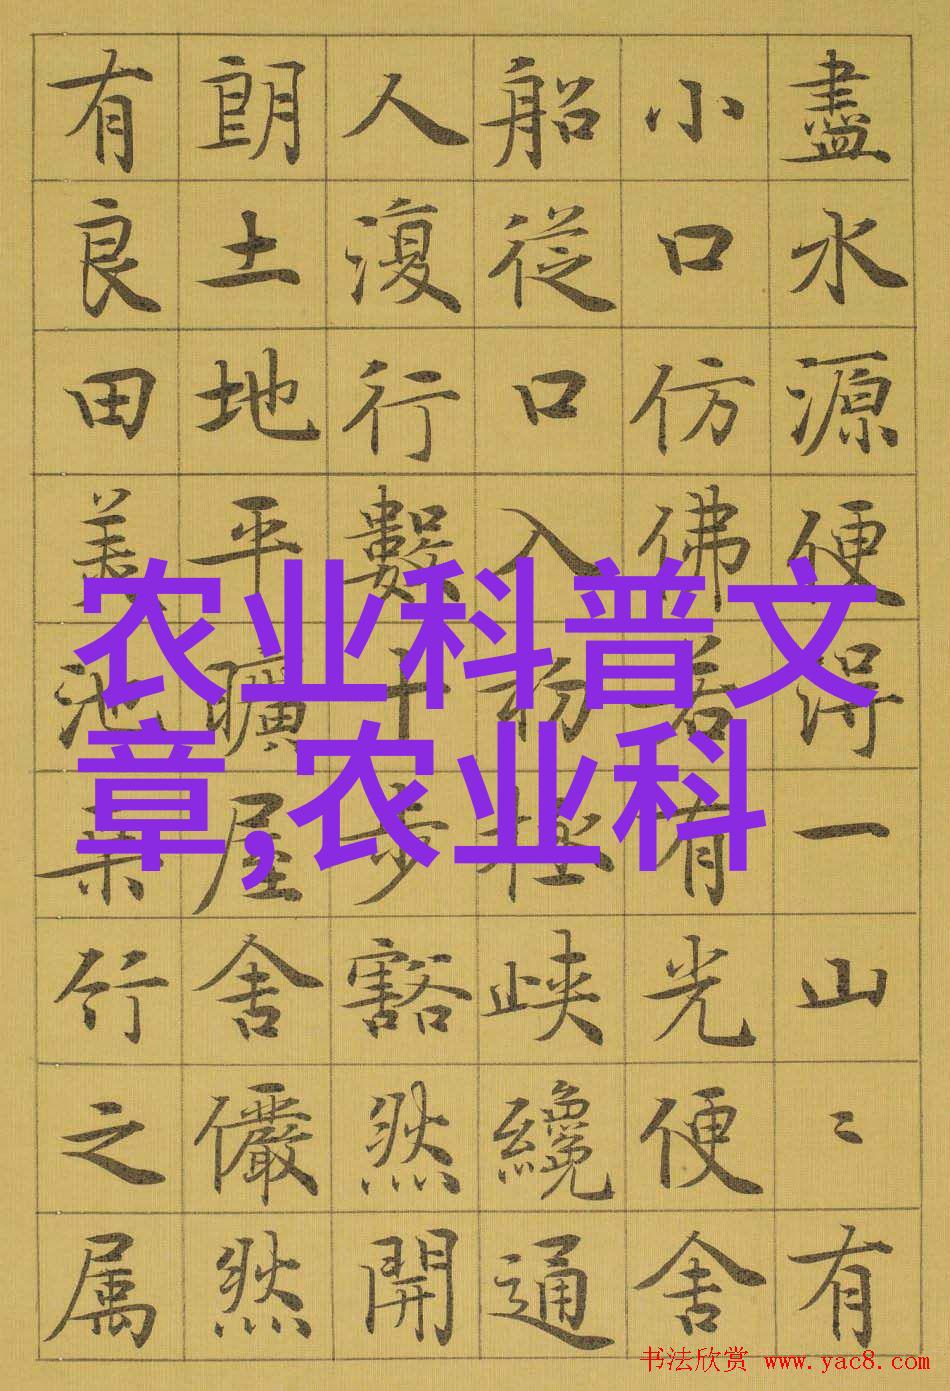 盡水源便得一山〻有
小口仿佛若有光便舍
船從口入初極峽纔通
人復行數十步豁然開
朗土地平曠屋舍儼然
有良田美池桑竹之属
农业科普文
章,农业科
书法欣赏 www.yac8.com